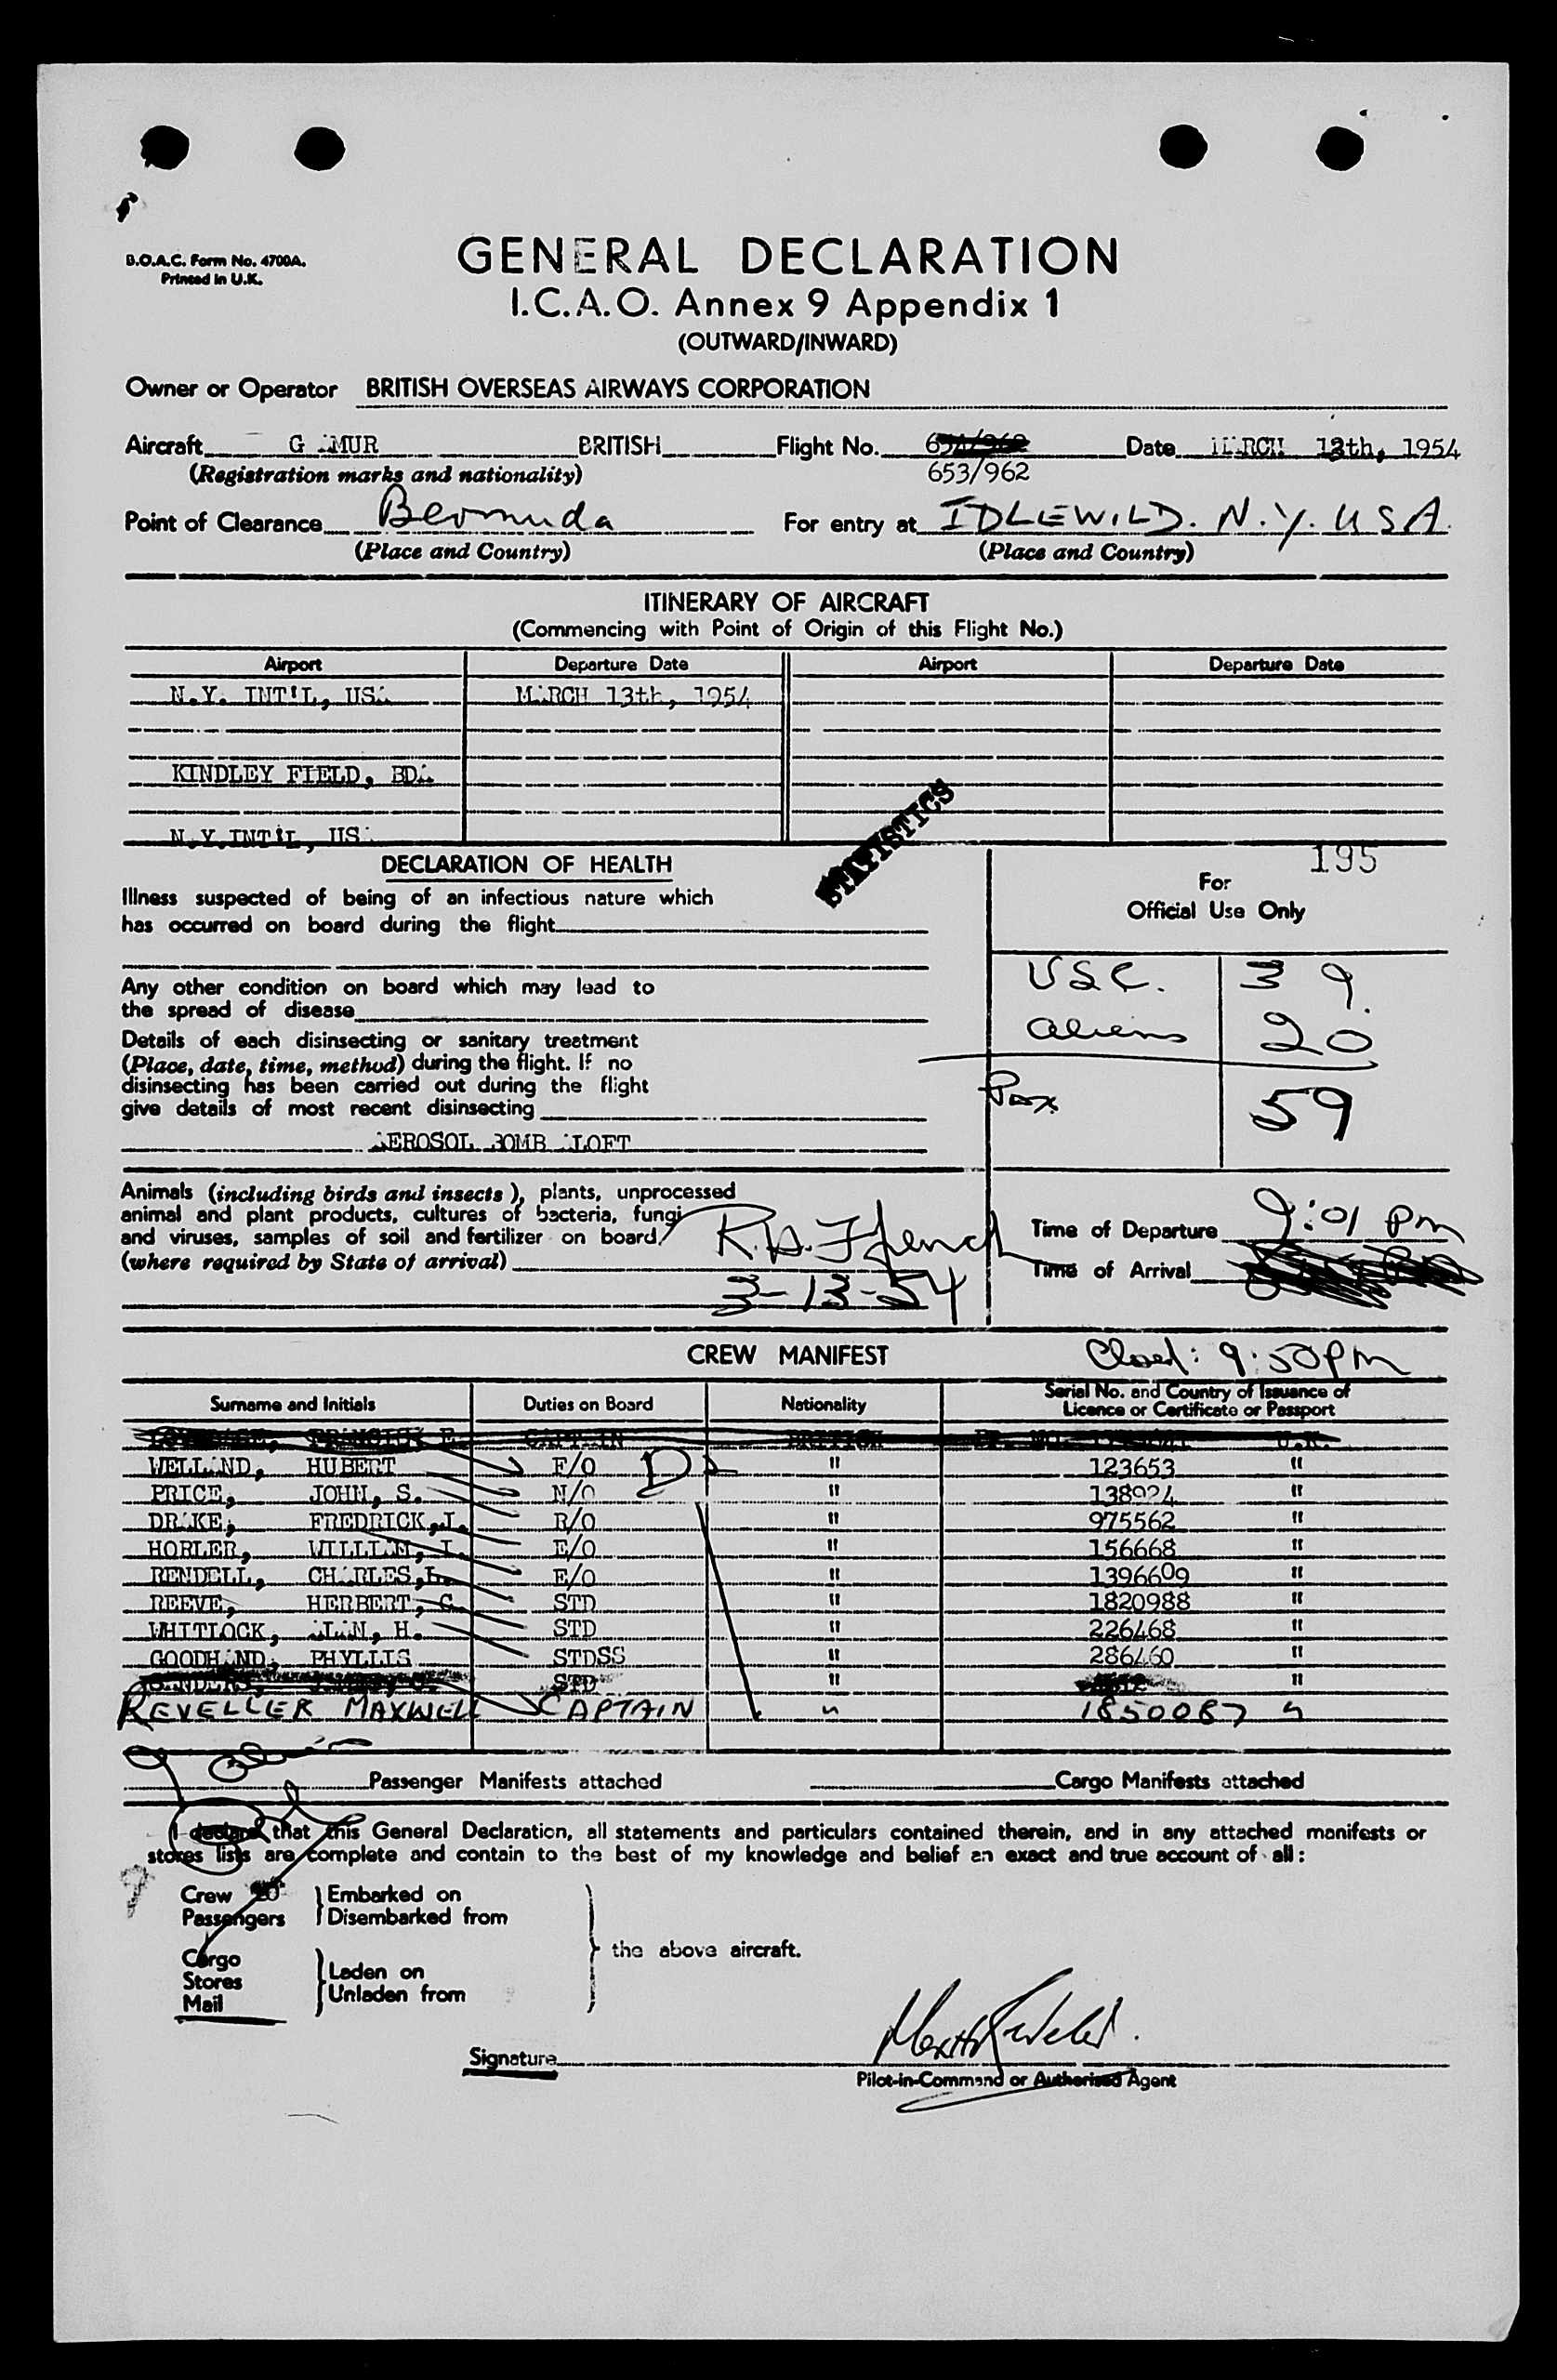 B.O.A.C. Form No. 4700A.
Printed in U.K.
GENERAL DECLARATION
I.C.A.O. Annex 9 Appendix 1
(OUTWARD/INWARD)
Owner or Operator BRITISH OVERSEAS AIRWAYS CORPORATION
Aircraft G AMUR BRITISH Flight No. Date MARCH 13th, 1954
(Registration marks and nationality) 653/962
Point of Clearance Bermuda For entry at IDLEWILD. N.Y. USA
(Place and Country) (Place and Country)
ITINERARY OF AIRCRAFT
(Commencing with Point of Origin of this Flight No.)
Airport Departure Date Airport Departure Date
N.Y. INT'L, USA MARCH 13th, 1954
KINDLEY FIELD, BDA
N.Y.INT'L, USA
STATISTICS
195
DECLARATION OF HEALTH
For
Official Use Only
Illness suspected of being of an infectious nature which
has occurred on board during the flight
USC. 39.
Any other condition on board which may lead to
the spread of disease
aliens 20
Details of each disinsecting or sanitary treatment
(Place, date, time, method) during the flight. If no
disinsecting has been carried out during the flight
give details of most recent disinsecting
Pax 59
AEROSOL BOMB ALOFT
Animals (including birds and insects), plants, unprocessed
animal and plant products, cultures of bacteria, fungi
and viruses, samples of soil and fertilizer on board
(where required by State of arrival)
3-13-54
Time of Departure 9:01 pm
Time of Arrival
CREW MANIFEST
Closed: 9:50pm
Surname and Initials Duties on Board Nationality Serial No. and Country of Issuance of
Licence or Certificate or Passport
CAPTAIN BRITISH U.K.
WELLAND, HUBERT F/O " 123653 "
PRICE, JOHN, S. N/O " 138924 "
DRAKE, FREDRICK,J. R/O " 975562 "
HORLER, WILLIAM, I. E/O " 156668 "
RENDELL, CHARLES,L. E/O " 1396609 "
REEVE, HERBERT, C. STD " 1820988 "
WHITLOCK, ALAN, H. STD " 226468 "
GOODHAND, PHYLLIS STDSS " 286460 "
STD " "
REVELLER MAXWELL CAPTAIN " 1850087 "
Passenger Manifests attached Cargo Manifests attached
I declare that this General Declaration, all statements and particulars contained therein, and in any attached manifests or
stores lists are complete and contain to the best of my knowledge and belief an exact and true account of all:
Crew Embarked on
Passengers Disembarked from
the above aircraft.
Cargo
Stores Laden on
Mail Unladen from
Signature
Pilot-in-Command or Authorised Agent